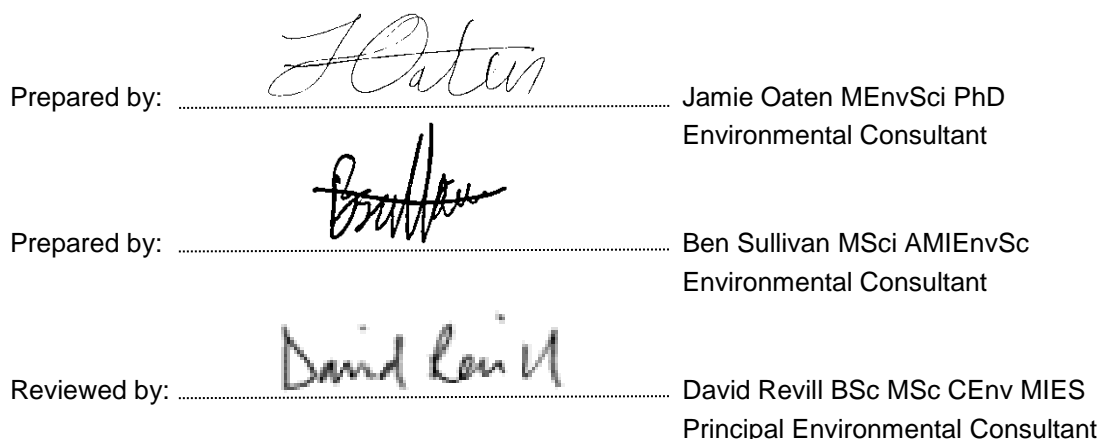 J Oaten
Prepared by: Jamie Oaten MEnvSci PhD
Environmental Consultant
Prepared by: Ben Sullivan MSci AMIEnvSc
Environmental Consultant
David Revill
Reviewed by: David Revill BSc MSc CEnv MIES
Principal Environmental Consultant